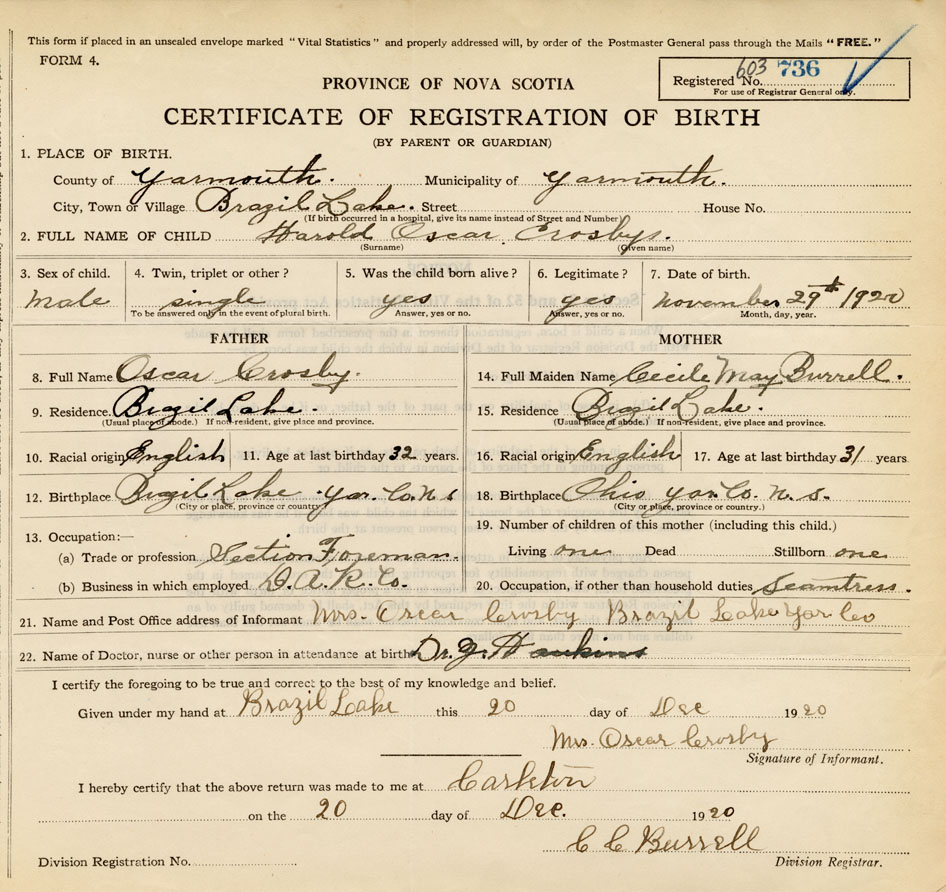 This form if placed in an unsealed envelope marked "Vital Statistics" and properly addressed will, by order of the Postmaster General pass through the Mails "FREE."
FORM 4.
603 736
Registered No.
For use of Registrar General only.
PROVINCE OF NOVA SCOTIA
CERTIFICATE OF REGISTRATION OF BIRTH
(BY PARENT OR GUARDIAN)
1. PLACE OF BIRTH.
County of Yarmouth. Municipality of Yarmouth.
City, Town or Village Brazil Lake. Street House No.
(If birth occurred in a hospital, give its name instead of Street and Number)
2. FULL NAME OF CHILD Harold Oscar Crosbys.
(Surname) (Given name)
3. Sex of child. 4. Twin, triplet or other? 5. Was the child born alive? 6. Legitimate? 7. Date of birth.
Male single yes yes November 29th 1920
To be answered only in the event of plural birth. Answer, yes or no. Answer, yes or no. Month, day, year.
FATHER MOTHER
8. Full Name Oscar Crosby. 14. Full Maiden Name Cecile May Burrell.
9. Residence. Brazil Lake. 15. Residence Brazil Lake.
(Usual place of abode.) If non-resident, give place and province. (Usual place of abode.) If non-resident, give place and province.
10. Racial origin English 11. Age at last birthday 32 years. 16. Racial origin English 17. Age at last birthday 31 years
12. Birthplace Brazil Lake Yar. Co. N S 18. Birthplace Ohio Yar Co. N. S.
(City or place, province or country) (City or place, province or country.)
19. Number of children of this mother (including this child.)
13. Occupation:—
Living one Dead Stillborn one
(a) Trade or profession Section Foreman.
(b) Business in which employed D.A.R. Co. 20. Occupation, if other than household duties Seamtress.
21. Name and Post Office address of Informant Mrs. Oscar Crosby Brazil Lake Yar Co
22. Name of Doctor, nurse or other person in attendance at birth Dr. J. Hawkins
I certify the foregoing to be true and correct to the best of my knowledge and belief.
Given under my hand at Brazil Lake this 20 day of Dec 1920
Mrs. Oscar Crosby
Signature of Informant.
I hereby certify that the above return was made to me at Carleton
on the 20 day of Dec. 1920
C C Burrell
Division Registration No. Division Registrar.